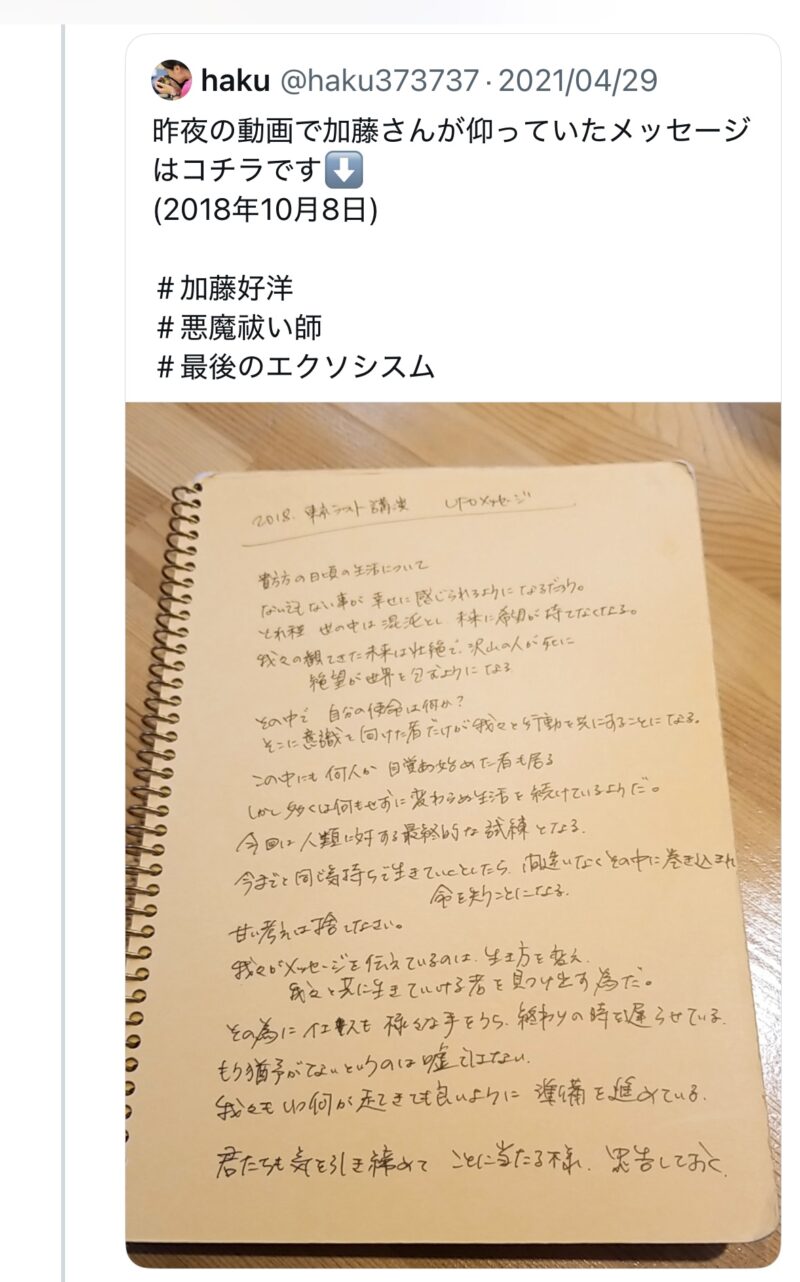 haku @haku373737・2021/04/29
昨夜の動画で加藤さんが仰っていたメッセージ
はコチラです⬇️
(2018年10月8日)
#加藤好洋
#悪魔祓い師
#最後のエクソシスム
2018. 東京ラスト講演 UFOメッセージ
貴方方の日頃の生活について
なんでもない事が幸せに感じられるようになるだろう。
それ程 世の中は混沌とし 未来に希望が持てなくなる。
我々の観てきた未来は壮絶で、沢山の人が死に
絶望が世界を包むようになる
その中で 自分の使命は何か?
そこに意識を向けた者だけが我々と行動を共にすることになる。
この中にも何人か 目覚め始めた者も居る
しかし多くは何もせずに変わらぬ生活を続けているようだ。
今回は人類に対する最終的な試練となる。
今までと同じ気持ちで生きていくとしたら、間違いなくその中に巻き込まれ
命を失うことになる。
甘い考えは捨てなさい。
我々がメッセージを伝えているのは、生き方を変え、
我々と共に生きていける者を見つけ出す為だ。
その為に 様々な手をうち、終わりの時を遅らせている。
もう猶予がないというのは嘘ではない。
我々もいつ何が起きても良いように 準備を進めている。
君たちも気を引き締めて ことに当たる様、忠告しておく。